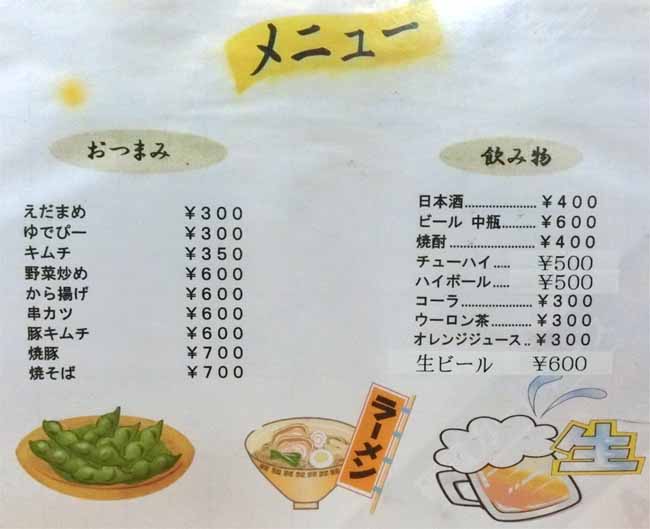 メニュー
おつまみ
えだまめ ￥３００
ゆでぴー ￥３００
キムチ ￥３５０
野菜炒め ￥６００
から揚げ ￥６００
串カツ ￥６００
豚キムチ ￥６００
焼豚 ￥７００
焼そば ￥７００
飲み物
日本酒..................... ￥４００
ビール 中瓶.......... ￥６００
焼酎......................... ￥４００
チューハイ..... ¥500
ハイボール..... ¥500
コーラ..................... ￥３００
ウーロン茶............ ￥３００
オレンジジュース.. ￥３００
生ビール ¥600
ラーメン
生